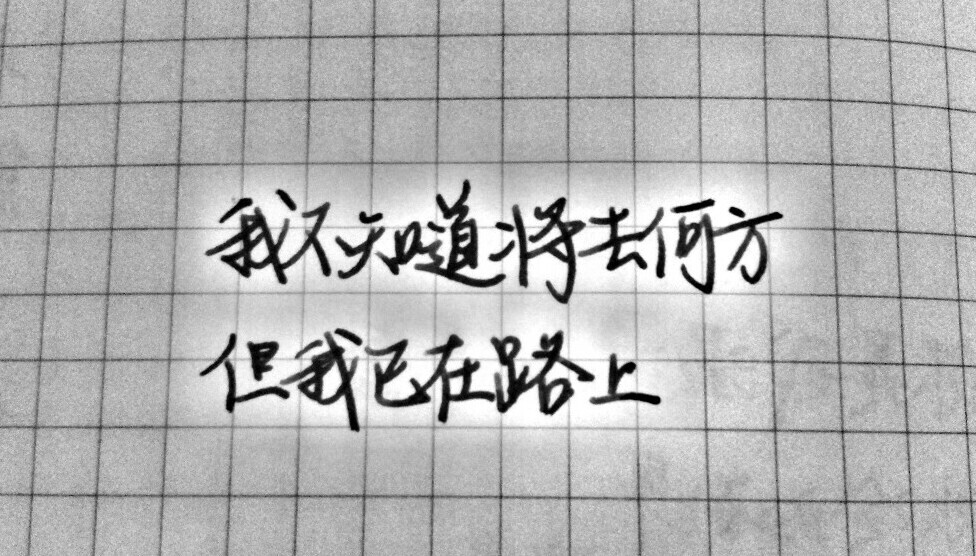 我不知道将去何方
但我已在路上